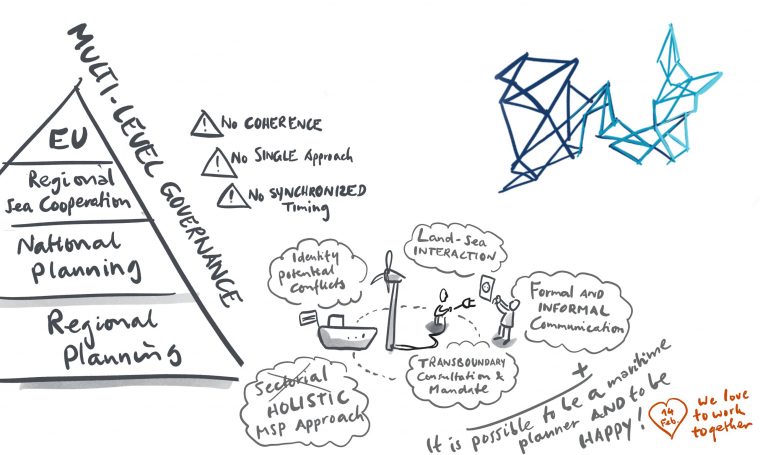 MULTI-LEVEL GOVERNANCE
EU
Regional
Sea Cooperation
National
Planning
Regional
Planning
! No COHERENCE
! No SINGLE Approach
! No SYNCHRONIZED
Timing
Identify
potential
conflicts
Land-Sea
INTERACTION
Formal AND
INFORMAL
Communication
TRANSBOUNDARY
Consultation &
Mandate
Sectorial
HOLISTIC
MSP Approach
+
It is possible to be a maritime
planner AND to be
HAPPY!
14
Feb
We love
to work
together